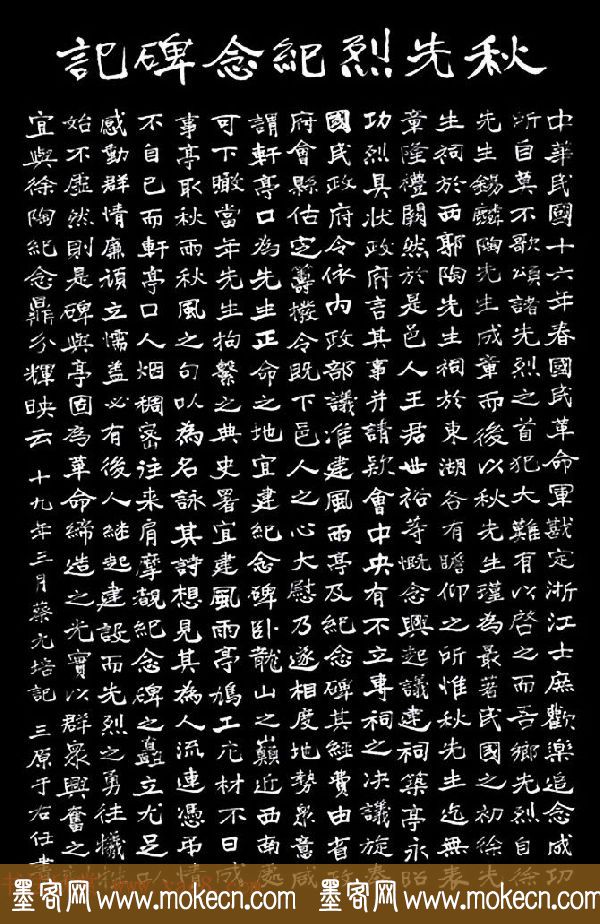 秋先烈紀念碑記
中華民國十六年春國民革命軍戡定浙江士庶歡樂追念成功
所自莫不歌頌諸先烈之首犯大難有以啓之而吾鄉先烈自徐
先生錫麟陶先生成章而後以秋先生瑾為最著民國之初徐先
生祠於西郭陶先生祠於東湖各有瞻仰之所惟秋先生迄無表
章隆禮闕然於是邑人王君世裕等慨念興起議建祠築亭永昭
功烈具狀政府言其事并請欵會中央有不立專祠之决議旋奉
國民政府令依內政部議准建風雨亭及紀念碑其經費由省
府會縣估定籌撥令既下邑人之心大慰乃遂相度地勢衆意咸
謂軒亭口為先生正命之地宜建紀念碑卧龍山之巔近西南處
可下瞰當年先生拘繫之典史署宜建風雨亭鳩工庀材不日成
事亭取秋雨秋風之句以為名詠其詩想見其為人流連憑弔情
不自已而軒亭口人烟稠密往來肩摩覩紀念碑之矗立尤足以
感動群情廉頑立懦蓋必有後人繼起建設而先烈之勇往犧牲
始不虛然則是碑與亭固為革命締造之光實以群眾興奮之
宜與徐陶紀念鼎分輝映云 十九年三月蔡元培記 三原于右任書
墨客网 www.mokecn.com 墨客网 www.mokecn.com